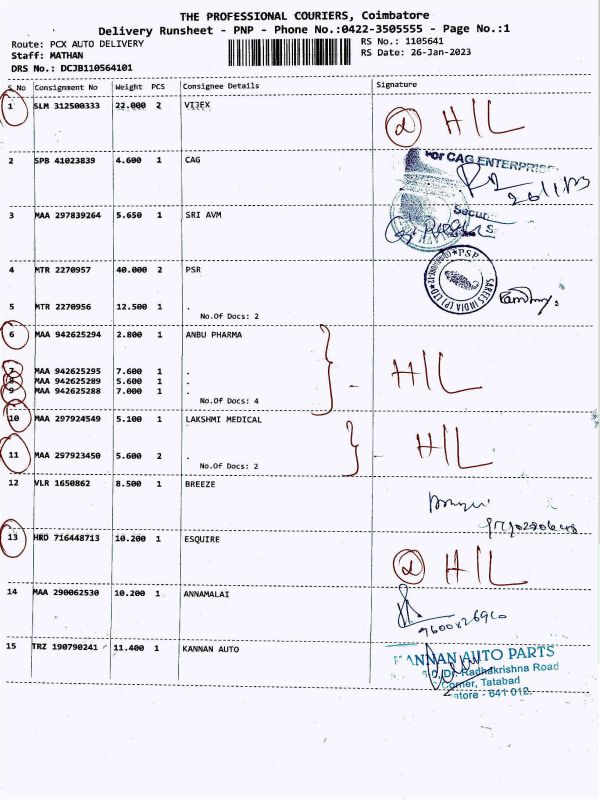 THE PROFESSIONAL COURIERS, Coimbatore
Delivery Runsheet - PNP - Phone No.:0422-3505555 - Page No.:1
Route: PCX AUTO DELIVERY
RS No.: 1105641
Staff: MATHAN
RS Date: 26-Jan-2023
DRS No.: DCJB110564101
S.No Consignment No Weight PCS Consignee Details Signature
1 SLM 312500333 22.000 2 VIJEX
H/L
2 SPB 41023839 4.600 1 CAG
For CAG ENTERPRISE
26/1/23
3 MAA 297839264 5.650 1 SRI AVM
Secur
4 MTR 2270957 40.000 2 PSR
PSP
SAREES INDIA (P) LTD
5 MTR 2270956 12.500 1 .
No.Of Docs: 2
6 MAA 942625294 2.800 1 ANBU PHARMA
7 MAA 942625295 7.600 1 .
8 MAA 942625289 5.600 1 .
9 MAA 942625288 7.000 1 .
H/L
No.Of Docs: 4
10 MAA 297924549 5.100 1 LAKSHMI MEDICAL
H/L
11 MAA 297923450 5.600 2 .
No.Of Docs: 2
12 VLR 1650862 8.500 1 BREEZE
13 HRD 716448713 10.200 1 ESQUIRE
H/L
14 MAA 290062530 10.200 1 ANNAMALAI
15 TRZ 190790241 11.400 1 KANNAN AUTO
ANNAN AUTO PARTS
Dr. Radhakrishna Road
Corner, Tatabad
atore - 641 012.